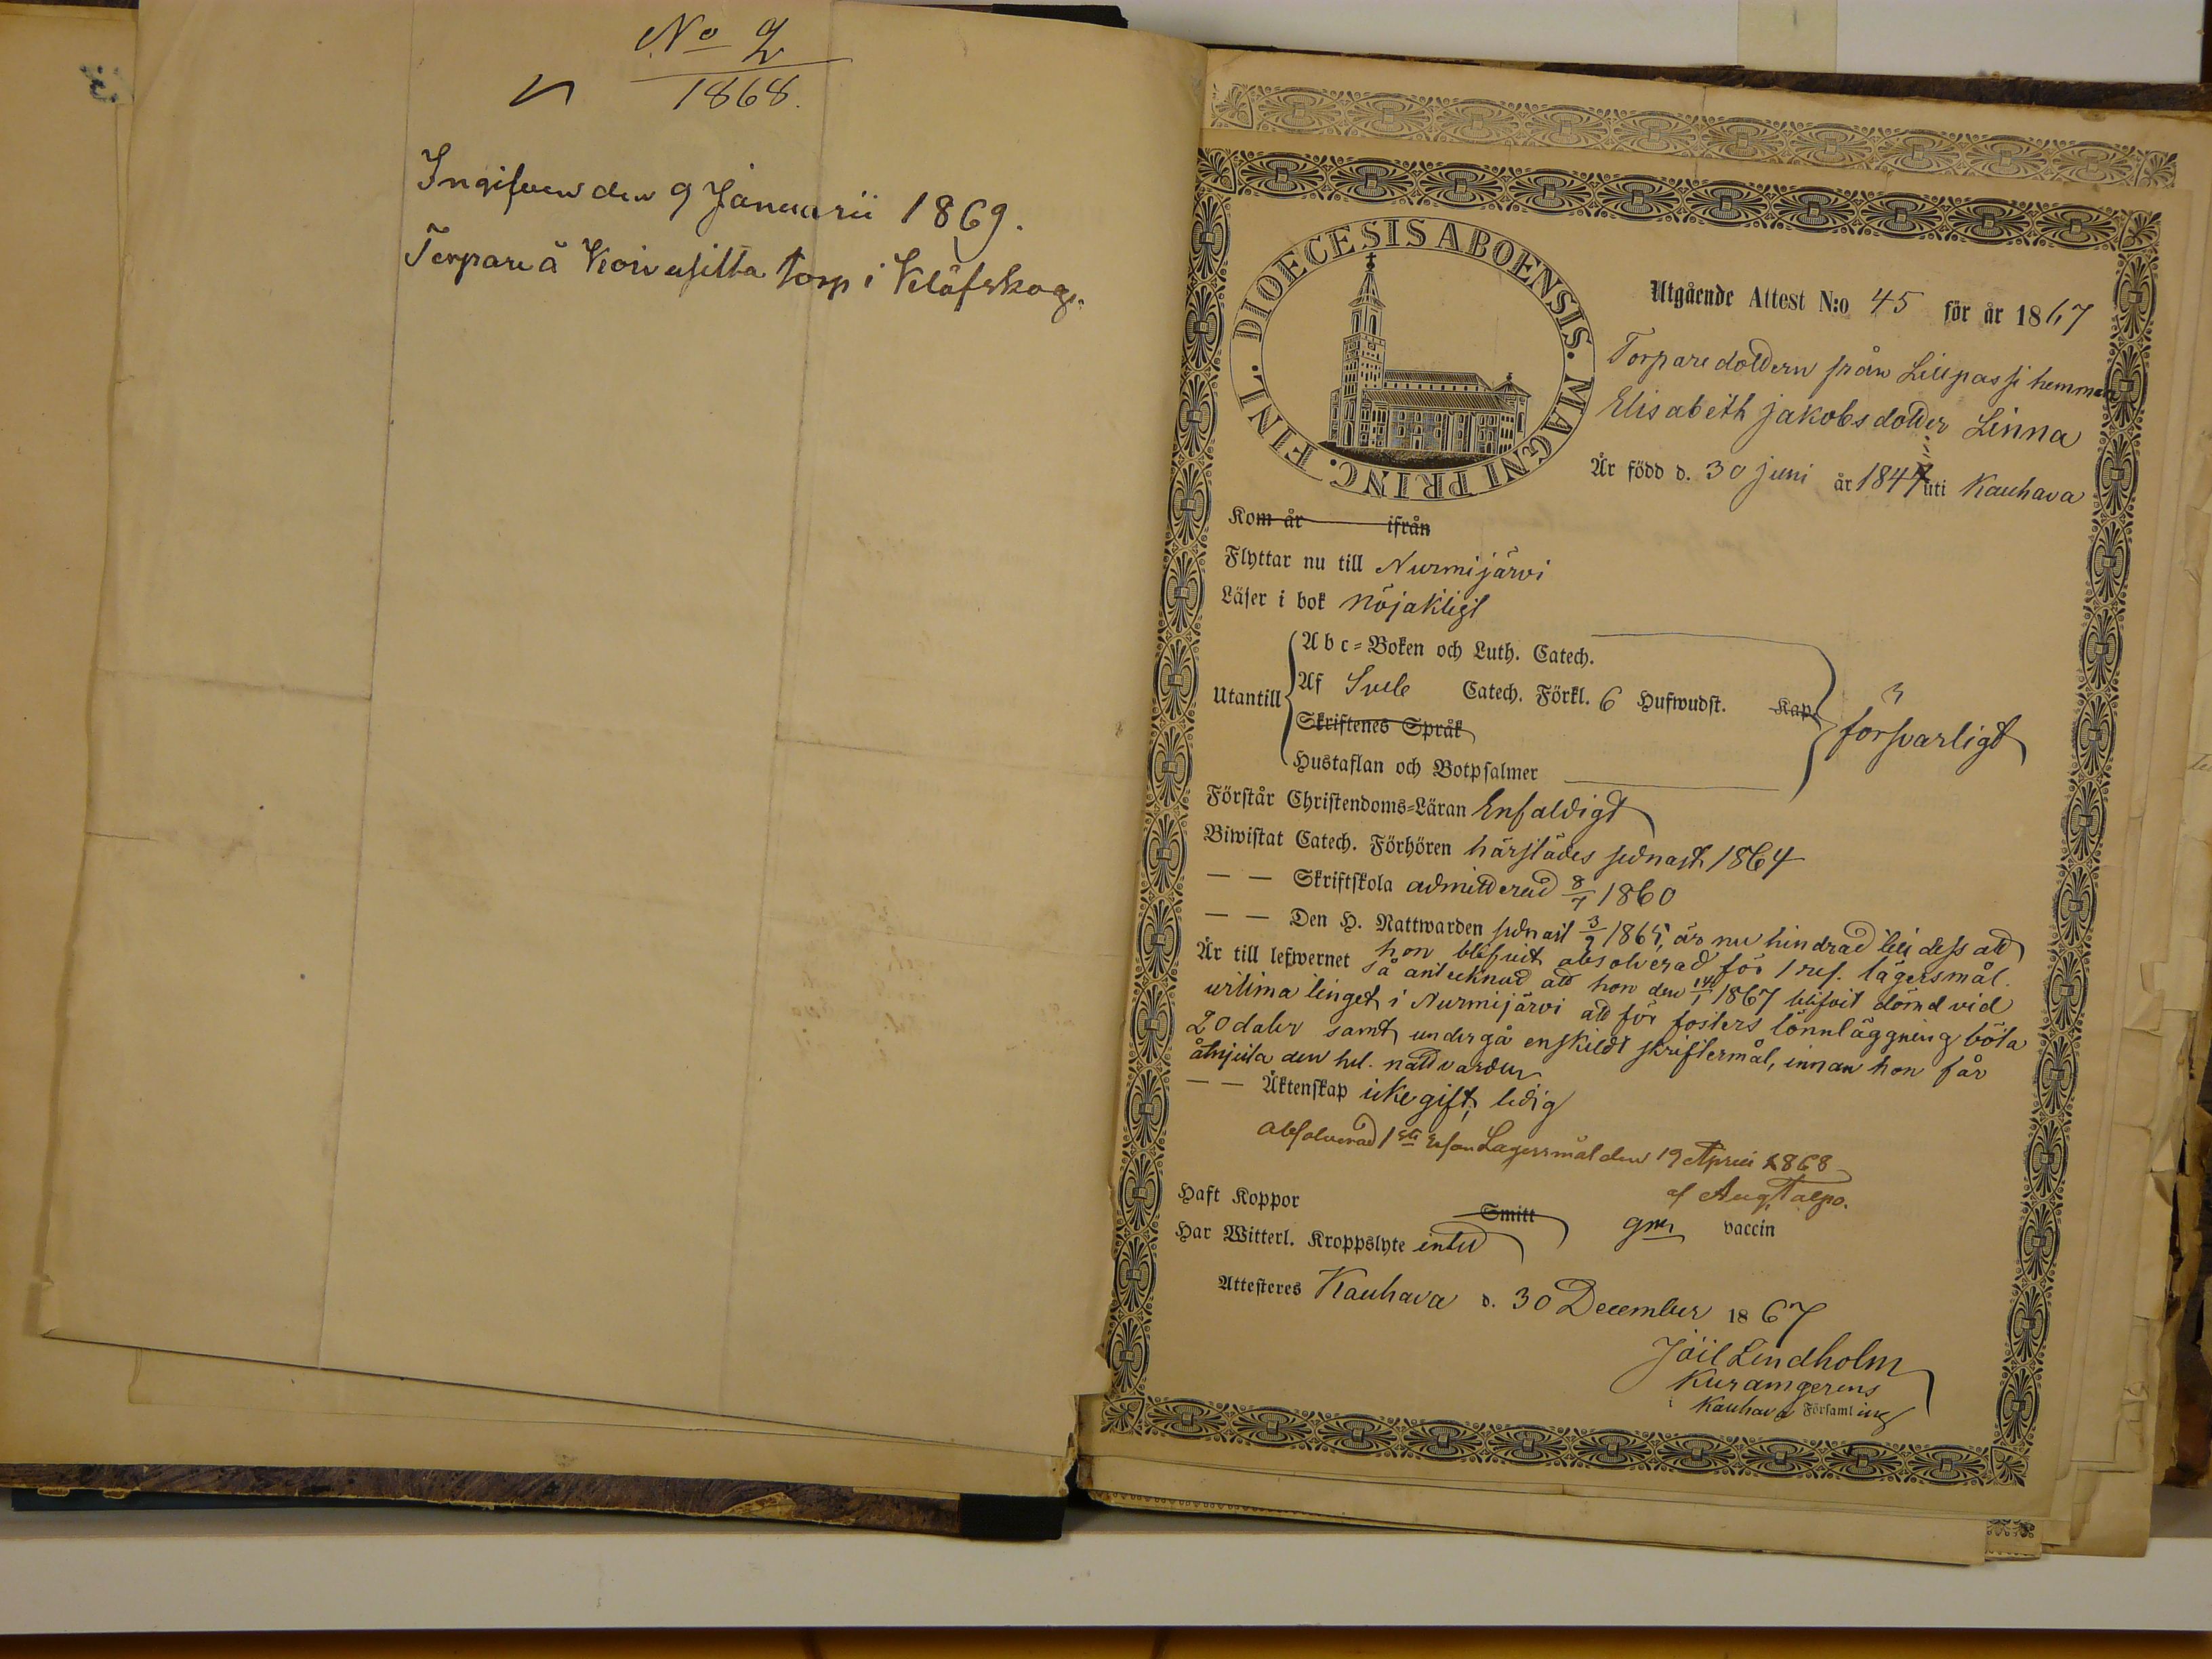 No 2
1868.
Ingifven den 9 Januarii 1869.
Torpare å Koivusilta torp i Klöfskog.
DIOECESIS ABOENSIS. MAGNI PRINC. FINL.
Utgående Attest N:o 45 för år 1867
Torparedottern från Lillpassi hemman
Elisabeth Jakobsdotter Linna
Är född d. 30 juni år 1844 uti Kauhava
Kom år ifrån
Flyttar nu till Nurmijärvi
Läser i bok nöjaktigt
Utantill
Abc=Boken och Luth. Catech.
Af Sveb Catech. Förkl. 6 Hufwudst. Kap.
Skriftenes Språk
Hustaflan och Botpsalmer
försvarligt
Förstår Christendoms=Läran Enfaldigt
Biwistat Catech. Förhören härstädes sednast 1864
— — Skriftskola admitterad 8/7 1860
— — Den H. Nattwarden sednast 3/9 1865, är nu hindrad till dess att
hon blifvit absolverad för 1 res. lägersmål.
Är till lefwernet så antecknad att hon den 1867 blifvit dömd vid
urtima tinget i Nurmijärvi att för fosters lönnläggning böta
20 daler samt undergå enskildt skriftermål, innan hon får
åtnjuta den hel. nattvarden
— — Äktenskap icke gift, ledig
Absolverad 1sta resan Lägersmål den 19 April 1868
af Aug. Talpo.
Haft Koppor Smitt gm vaccin
Har Witterl. Kroppslyte intet
Attesteres Kauhava d. 30 December 1867
Joel Lindholm
Kuramgerens
i Kauhava Församling